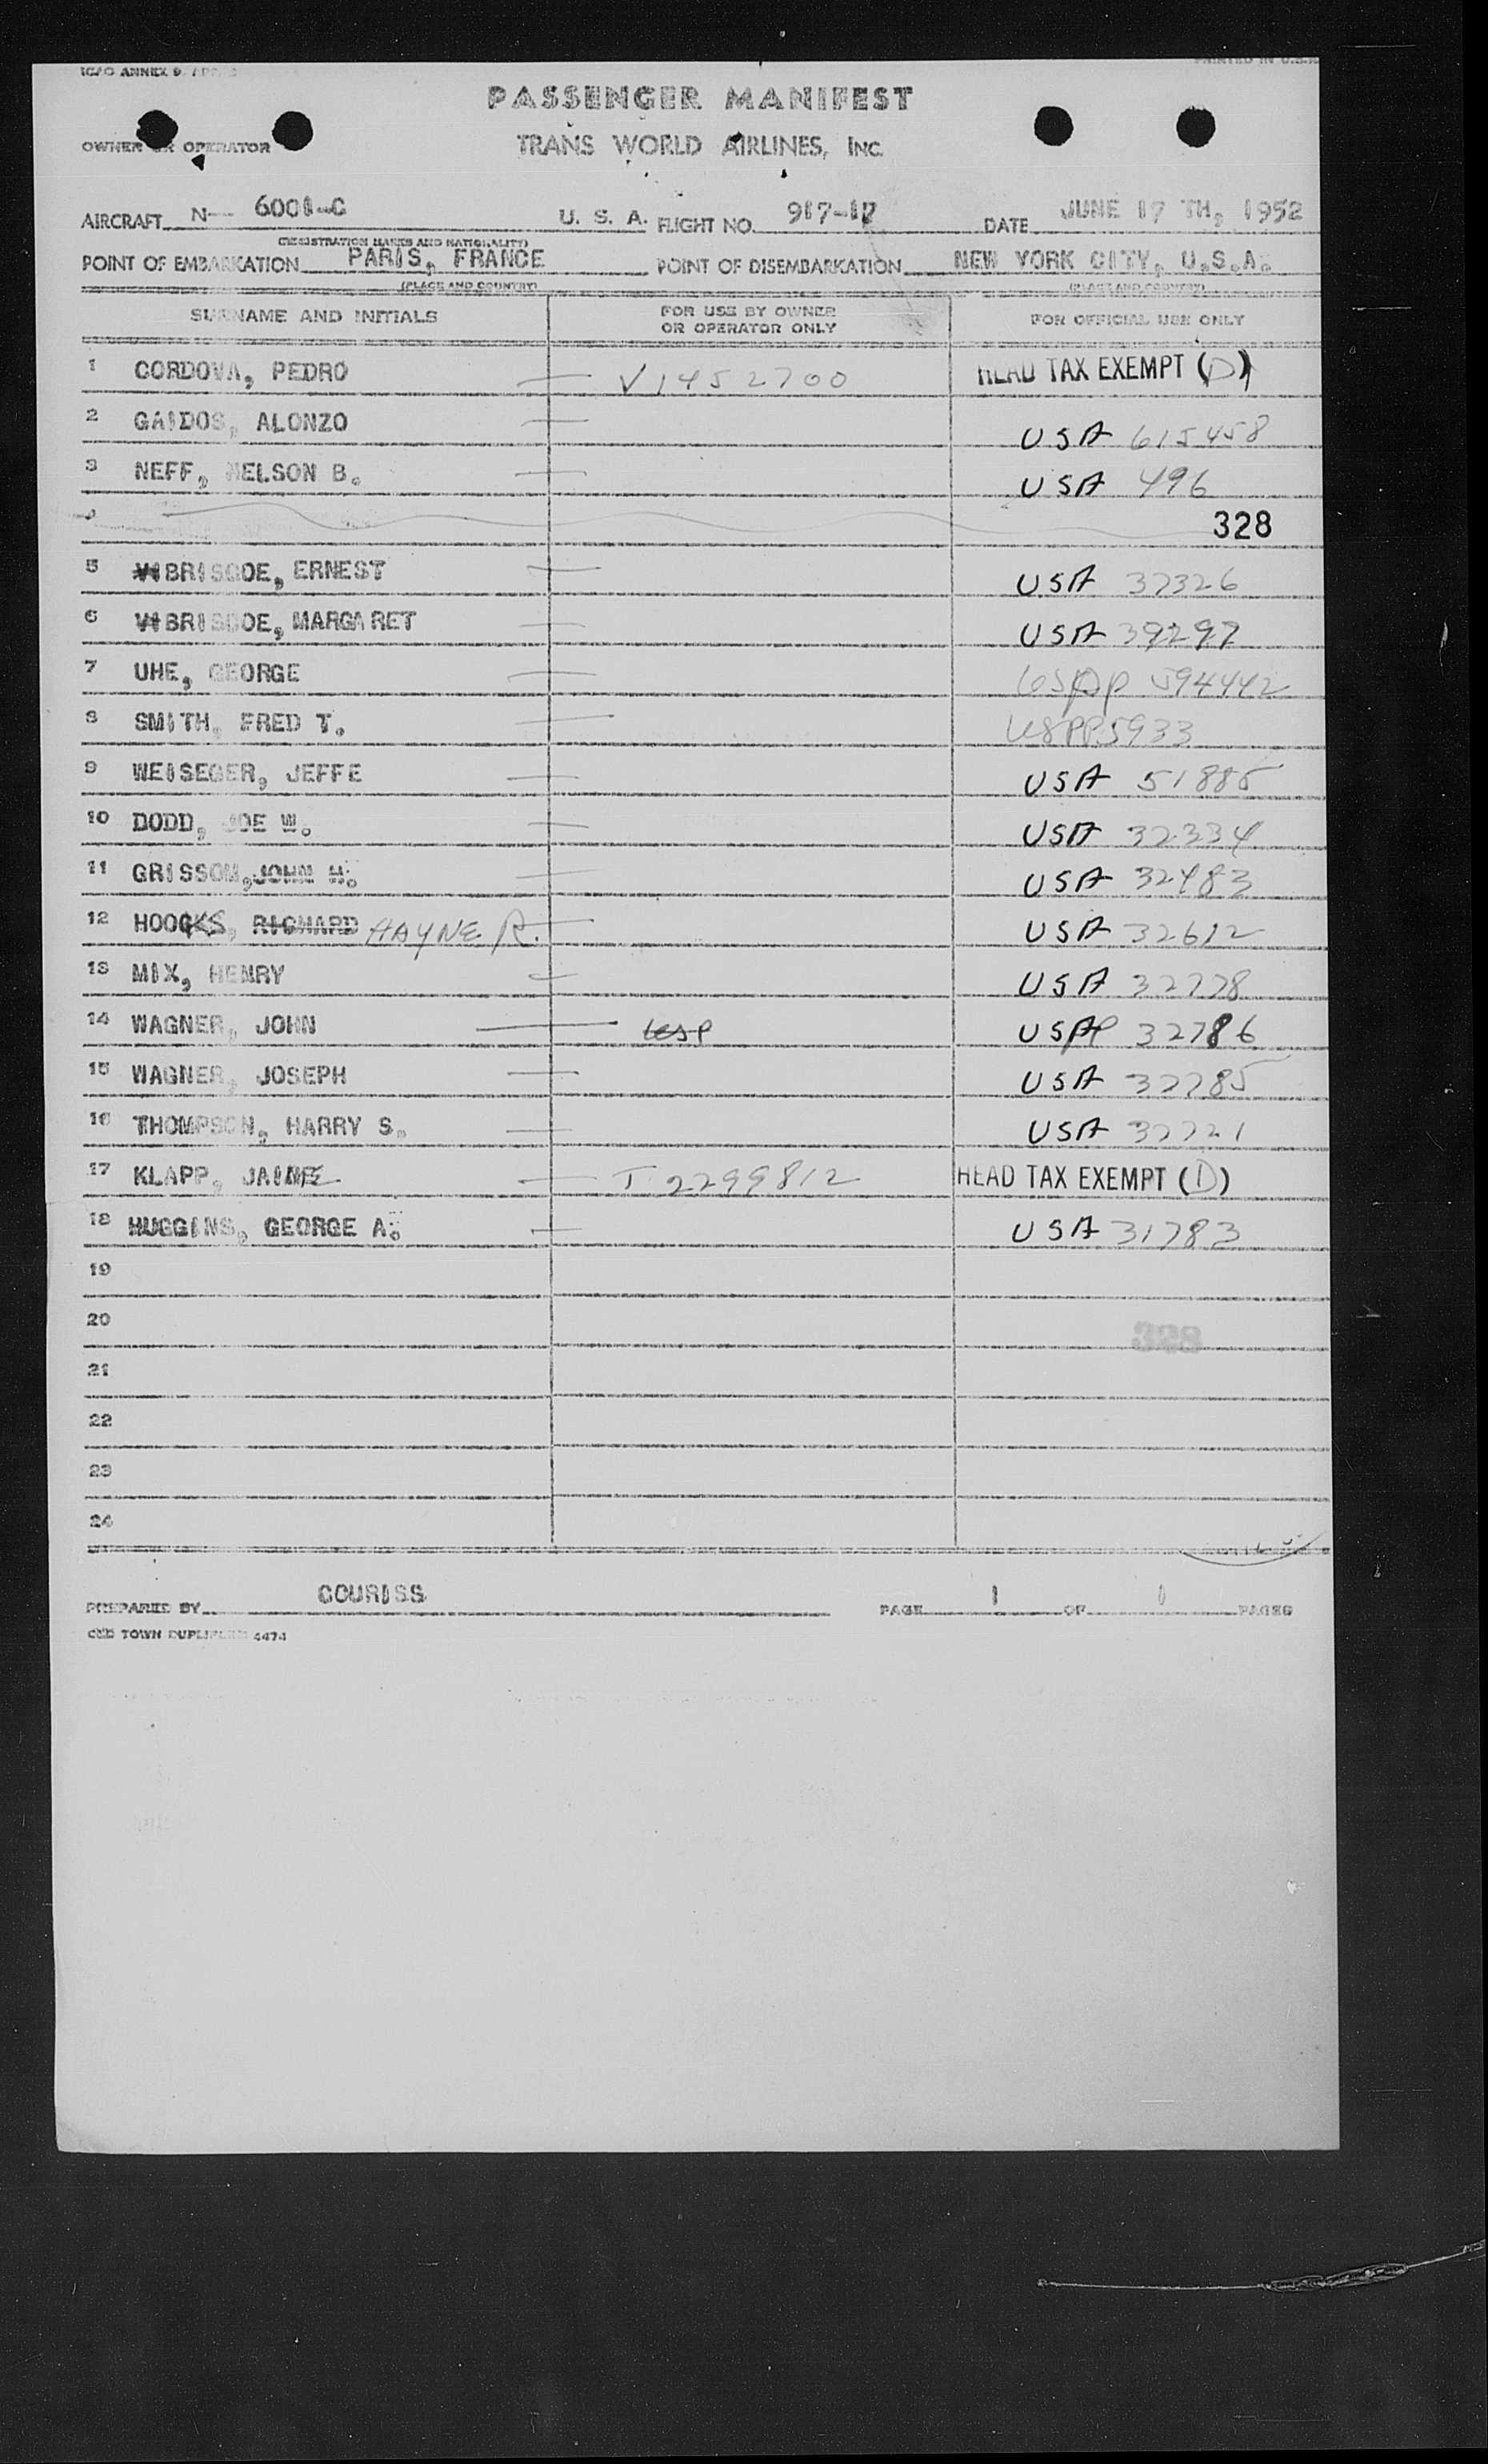 ICAO ANNEX 9,
PRINTED IN U.S.A.
PASSENGER MANIFEST
OWNER OR OPERATOR TRANS WORLD AIRLINES, INC.
AIRCRAFT N— 6001-C U. S. A. FLIGHT NO. 917-17 DATE JUNE 17 TH, 1952
(REGISTRATION MARKS AND NATIONALITY)
POINT OF EMBARKATION PARIS, FRANCE POINT OF DISEMBARKATION NEW YORK CITY, U.S.A.
(PLACE AND COUNTRY) (PLACE AND COUNTRY)
SURNAME AND INITIALS FOR USE BY OWNER OR OPERATOR ONLY FOR OFFICIAL USE ONLY
1 CORDOVA, PEDRO V1452700 HEAD TAX EXEMPT (D)
2 GAIDOS, ALONZO USA 615458
3 NEFF, NELSON B. USA 496
4 328
5 BRISCOE, ERNEST USA 37326
6 BRISCOE, MARGARET USA 39297
7 UHE, GEORGE USPP 594442
8 SMITH, FRED T. USPP5933
9 WEISEGER, JEFFE USA 51885
10 DODD, JOE W. USA 32334
11 GRISSOM, JOHN H. USA 32483
12 HOOKS, RICHARD HAYNE R. USA 32612
13 MIX, HENRY USA 32778
14 WAGNER, JOHN USP USPP 32786
15 WAGNER, JOSEPH USA 32785
16 THOMPSON, HARRY S. USA 32721
17 KLAPP, JAIME T 2299812 HEAD TAX EXEMPT (D)
18 HUGGINS, GEORGE A. USA 31783
19
20 328
21
22
23
24
PREPARED BY COURISS PAGE 1 OF 1 PAGES
OLD TOWN 4474